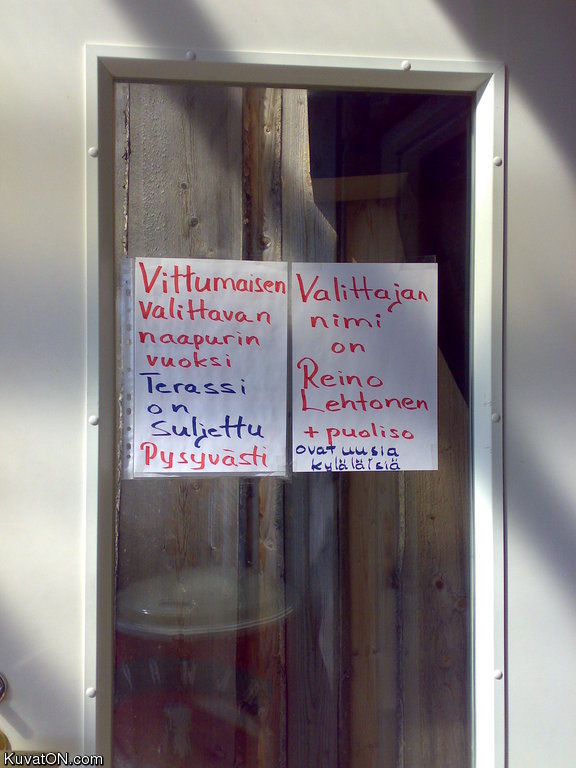 Vittumaisen
Valittavan
naapurin
vuoksi
Terassi
on
Suljettu
Pysyvästi
Valittajan
nimi
on
Reino
Lehtonen
+ puoliso
ovat uusia
kyläläisiä
KuvatON.com